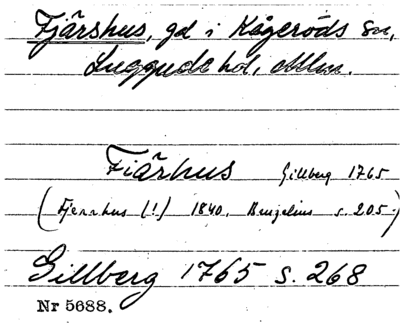 Fjärshus, gd i Kågeröds sn,
Luggude hd, Mlm.
Fiärhus Gillberg 1765
(Fjerrhus (!) 1840. Benzelius s. 205.)
Gillberg 1765 s. 268
Nr 5688.